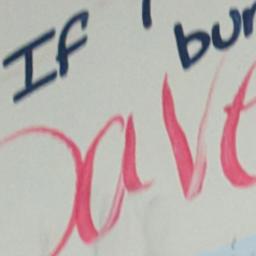 If bur
save